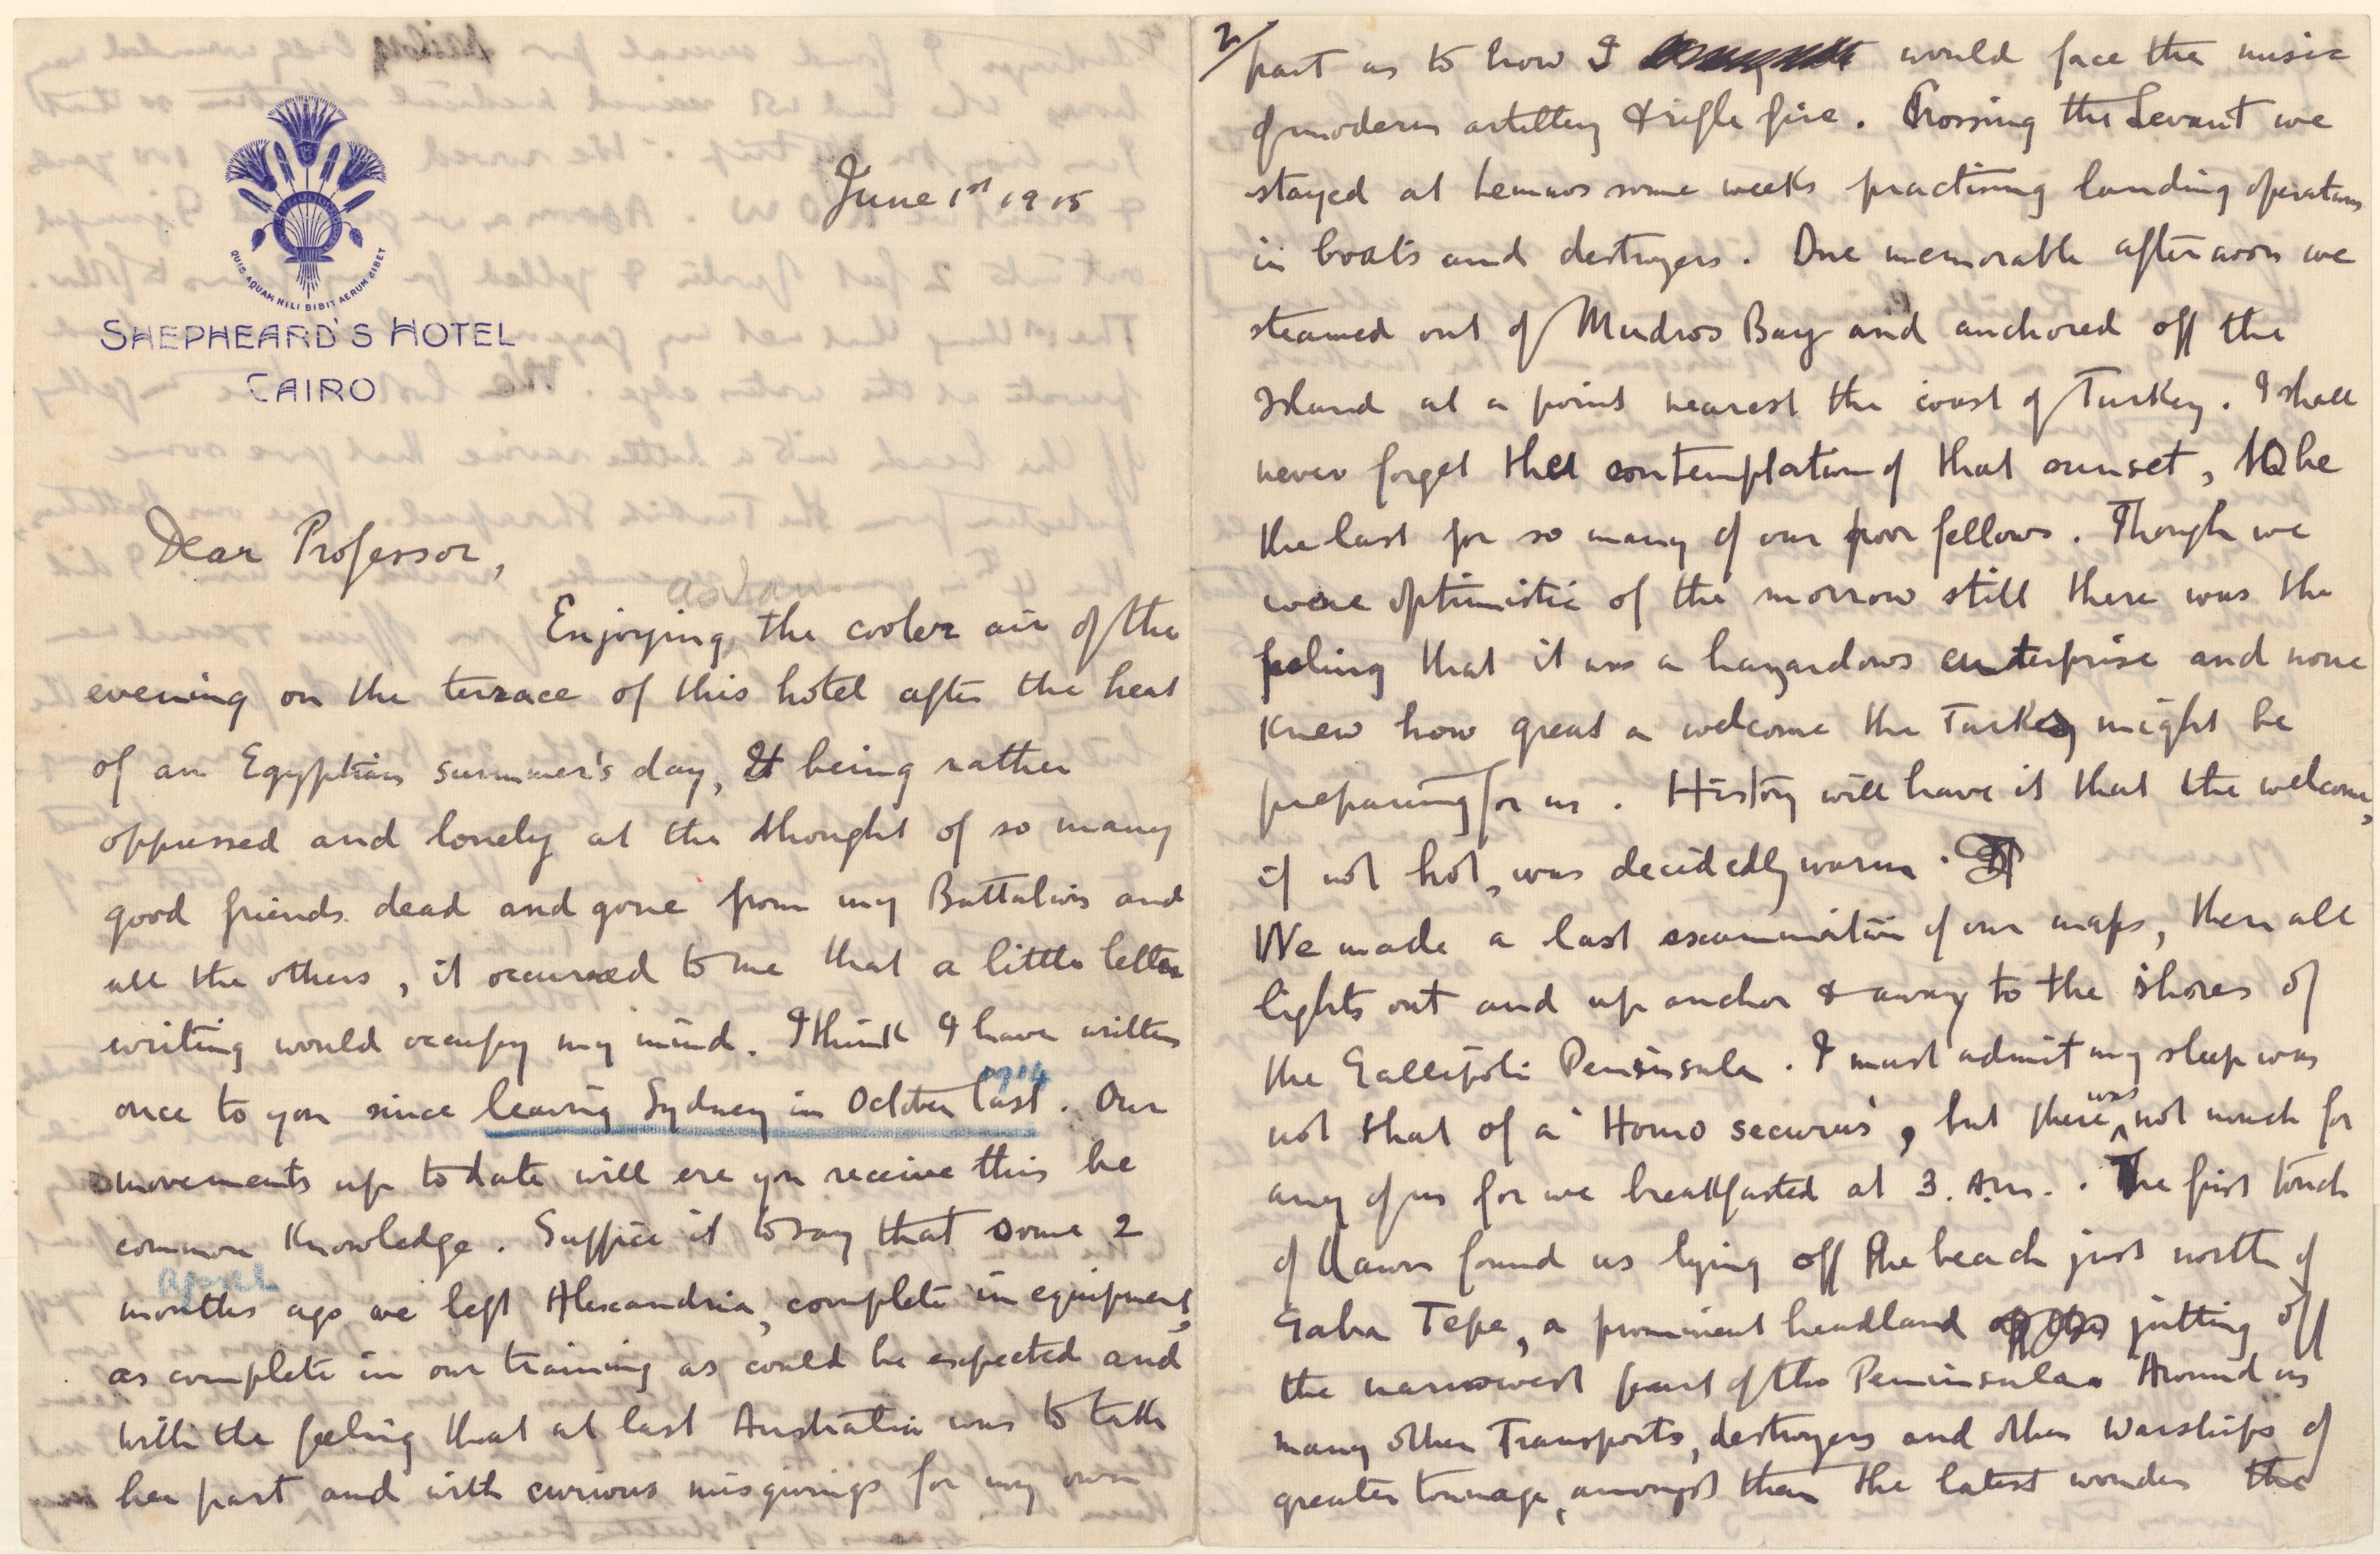 QUIS AQUAM NILI BIBIT AERUM BIBET
SHEPHEARD'S HOTEL
CAIRO
June 1st 1915
Dear Professor,
as I am
Enjoying the cooler air of the
evening on the terrace of this hotel after the heat
of an Egyptian summer's day, & being rather
oppressed and lonely at the thought of so many
good friends dead and gone from my Battalion and
all the others, it occurred to me that a little letter
writing would occupy my mind. I think I have written
1914
once to you since leaving Sydney in October last. Our
movements up to date will ere you receive this be
common knowledge. Suffice it to say that some 2
april
months ago we left Alexandria, complete in equipment,
as complete in our training as could be expected and
with the feeling that at last Australia was to take
her part and with curious misgivings for my own
2/
part as to how I would face the music
of modern artillery & rifle fire. Crossing the Levant we
stayed at Lemnos some weeks practising landing operations
in boats and destroyers. One memorable afternoon we
steamed out of Mudros Bay and anchored off the
Island at a point nearest the coast of Turkey. I shall
never forget the contemplation of that sunset, to be
the last for so many of our poor fellows. Though we
were optimistic of the morrow still there was the
feeling that it was a hazardous enterprise and none
knew how great a welcome the Turkey might be
preparing for us. History will have it that the welcome,
if not hot, was decidedly warm.
We made a last examination of our maps, then all
lights out and up anchor & away to the shores of
the Gallipoli Peninsula. I must admit my sleep was
not that of a 'Homo securus', but there was not much for
any of us for we breakfasted at 3. A.m.. The first touch
of dawn found us lying off the beach just north of
Gaba Tepe, a prominent headland jutting off
the narrowest part of the Peninsula. Around us
many other Transports, destroyers and other Warships of
greater tonnage, amongst them the latest wonder the